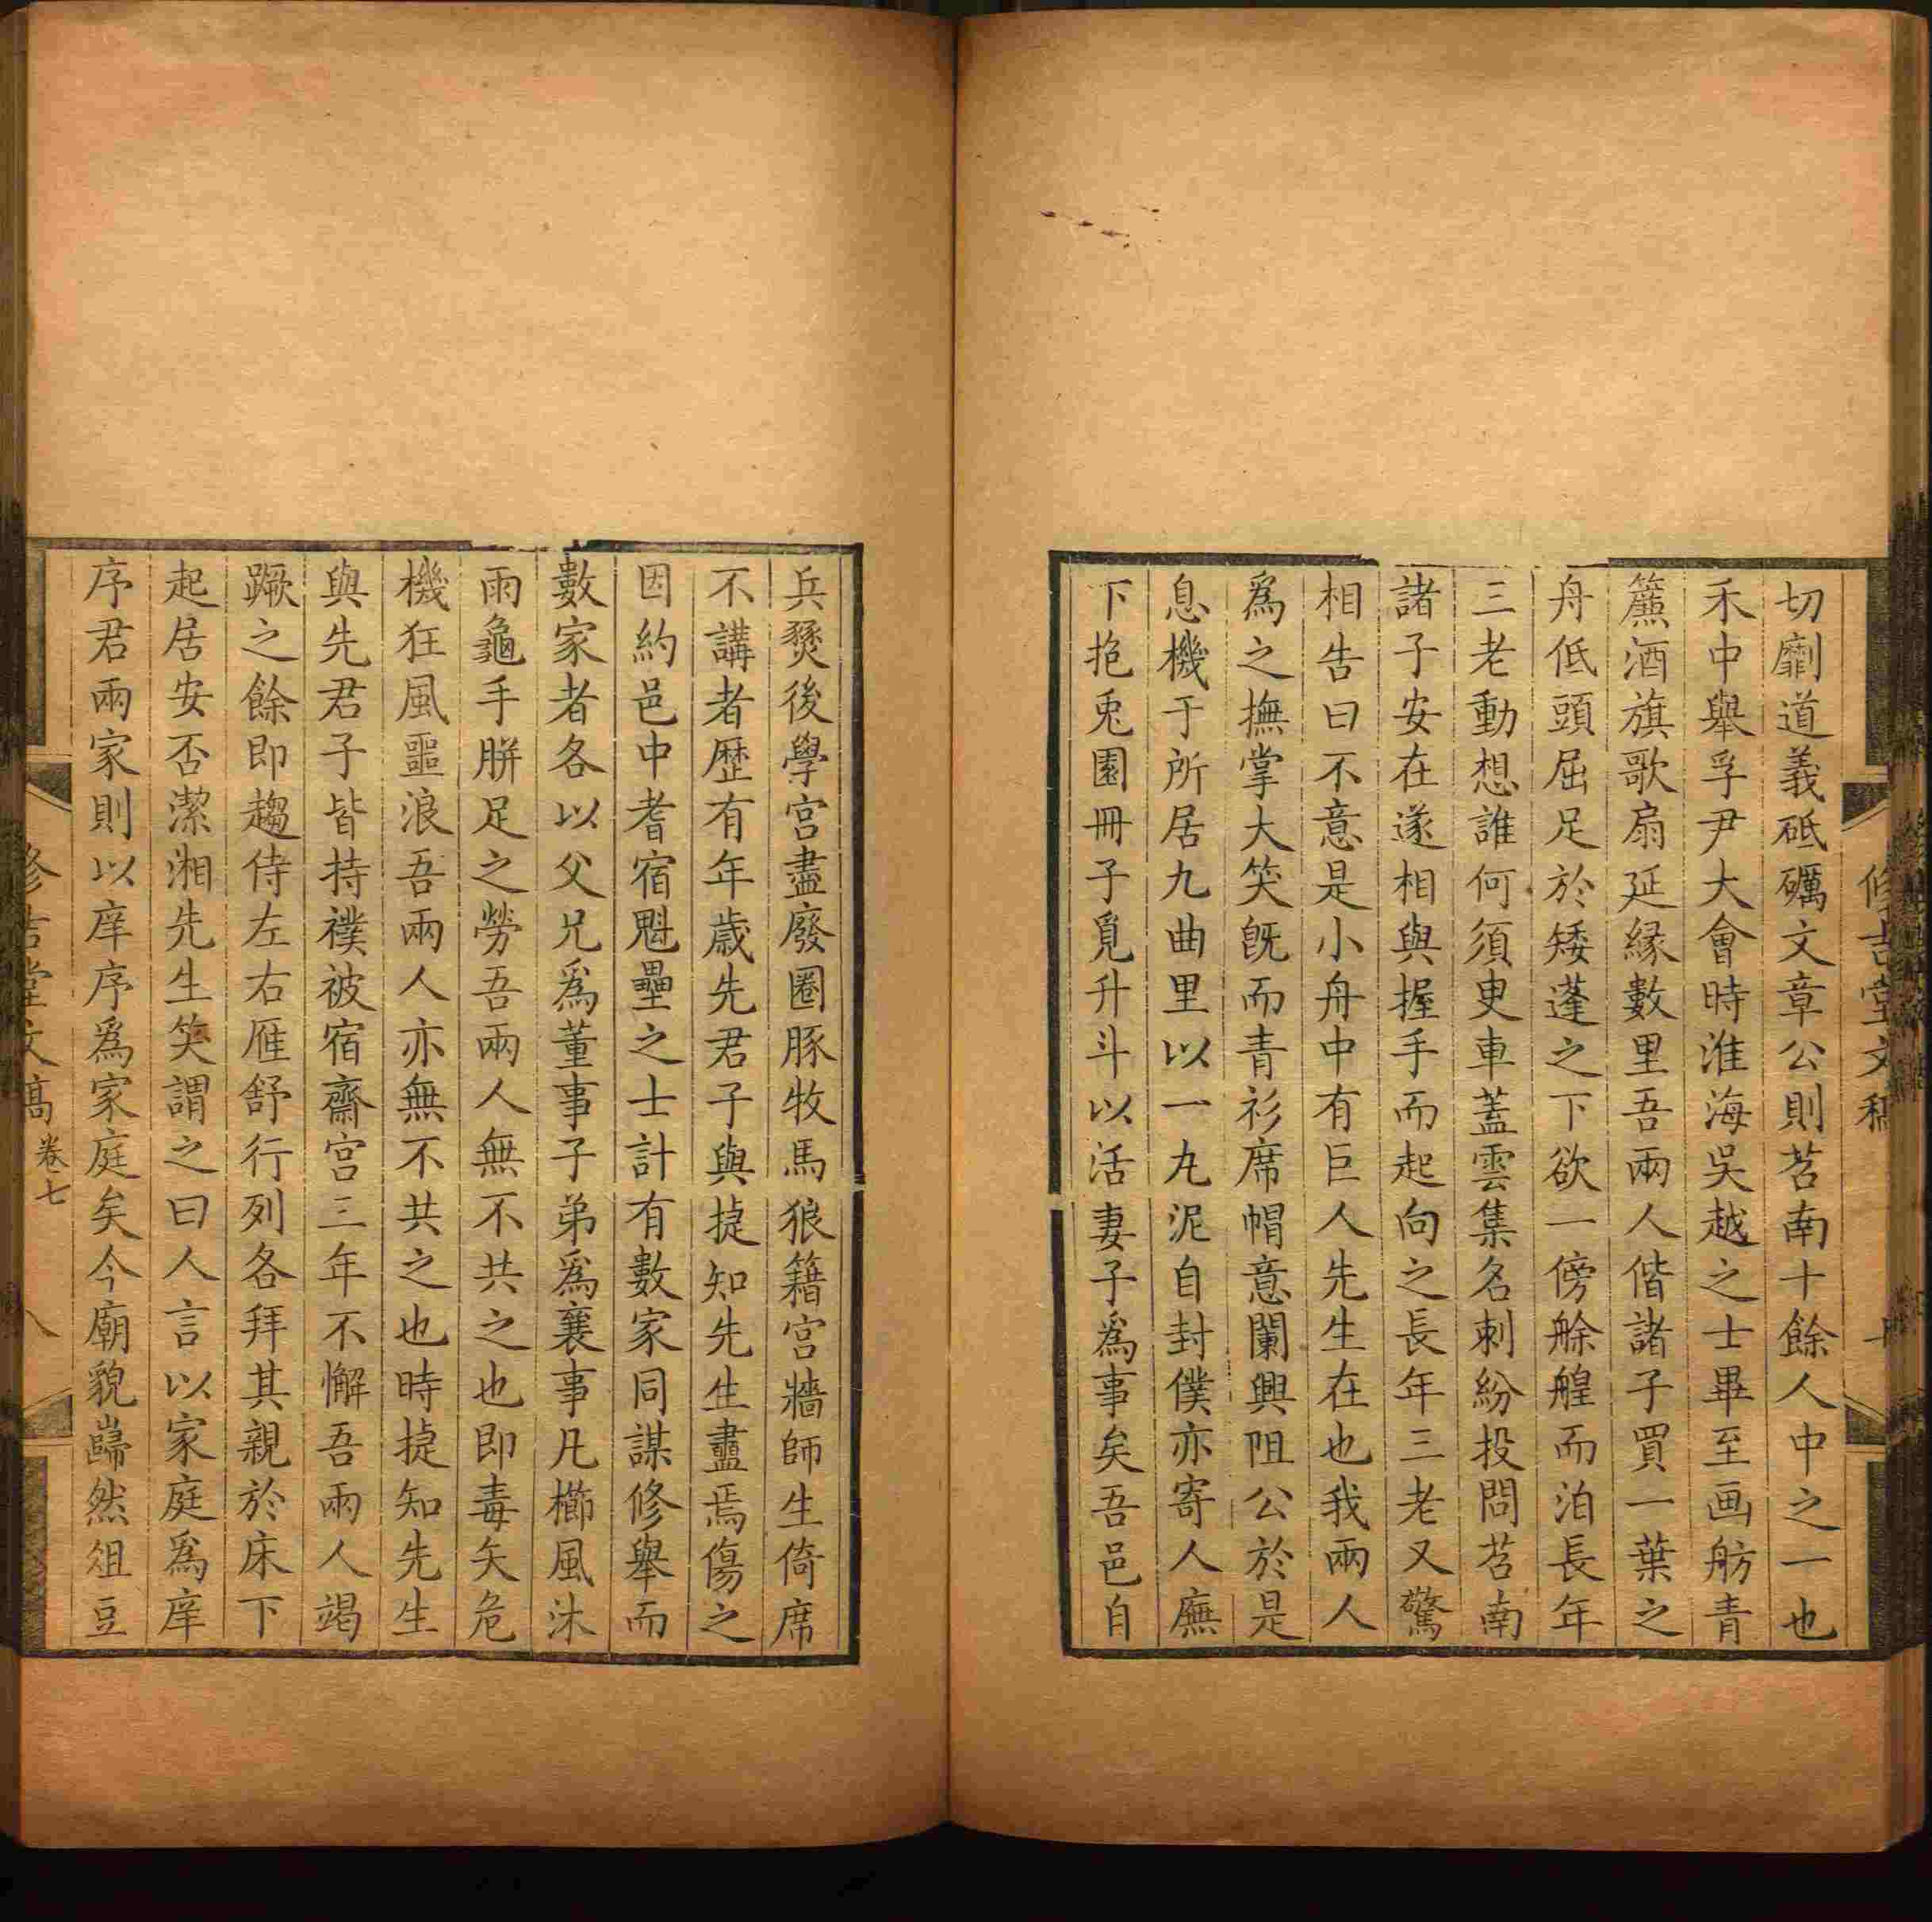 修吉堂文稿
切劘道義砥礪文章公則苕南十餘人中之一也
禾中舉孚尹大會時淮海吳越之士畢至画舫青
簾酒旗歌扇延緣數里吾兩人偕諸子買一葉之
舟低頭屈足於矮蓬之下欲一傍艅艎而泊長年
三老動想誰何須臾車蓋雲集名刺紛投問苕南
諸子安在遂相與握手而起向之長年三老又驚
相告曰不意是小舟中有巨人先生在也我兩人
爲之撫掌大笑旣而青衫席帽意闌興阻公於是
息機于所居九曲里以一丸泥自封僕亦寄人廡
下抱兎園冊子覓升斗以活妻子爲事矣吾邑自
兵燹後學宮盡廢圈豚牧馬狼籍宮牆師生倚席
不講者歷有年歲先君子與㨗知先生盡焉傷之
因約邑中耆宿魁壘之士計有數家同謀修舉而
數家者各以父兄爲董事子弟爲襄事凡櫛風沐
雨龜手胼足之勞吾兩人無不共之也即毒矢危
機狂風噩浪吾兩人亦無不共之也時㨗知先生
與先君子皆持襆被宿齋宮三年不懈吾兩人竭
蹶之餘即趨侍左右雁舒行列各拜其親於床下
起居安否潔湘先生笑謂之曰人言以家庭爲庠
序君兩家則以庠序爲家庭矣今廟貌巋然俎豆
修吉堂文稿 卷七 八